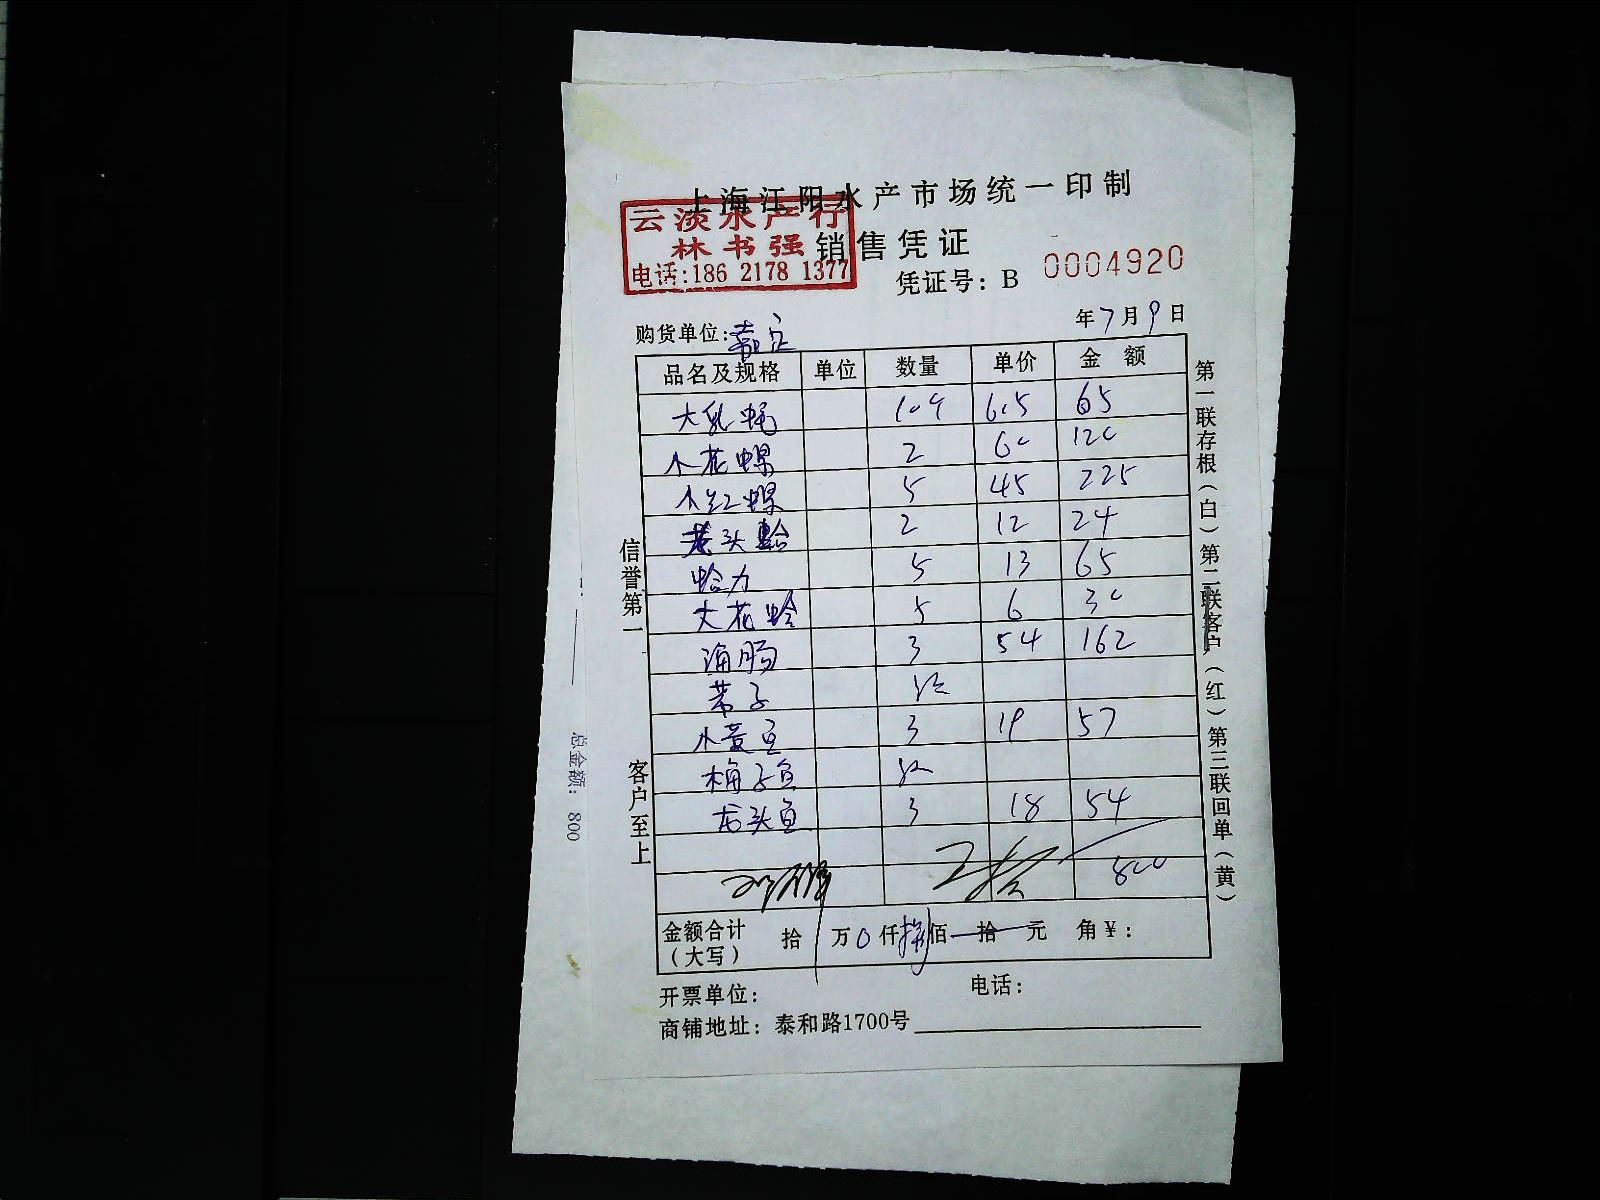 上海江阳水产市场统一印制
云淡水产行
林书强
电话:186 2178 1377
销售凭证
凭证号：B 0004920
购货单位:嘉定 年7月9日
品名及规格 单位 数量 单价 金额
大乳蛏 10个 6.5 65
小花螺 2 60 120
小红螺 5 45 225
老头蛤 2 12 24
蛤力 5 13 65
大花蛤 5 6 30
海肠 3 54 162
带子
小黄豆 3 19 57
梅子鱼
龙头鱼 3 18 54
800
金额合计（大写） 拾 万0仟捌佰 拾 元 角￥：
开票单位: 电话：
商铺地址：泰和路1700号
信誉第一
客户至上
第一联存根（白）第二联客户（红）第三联回单（黄）
总金额：800